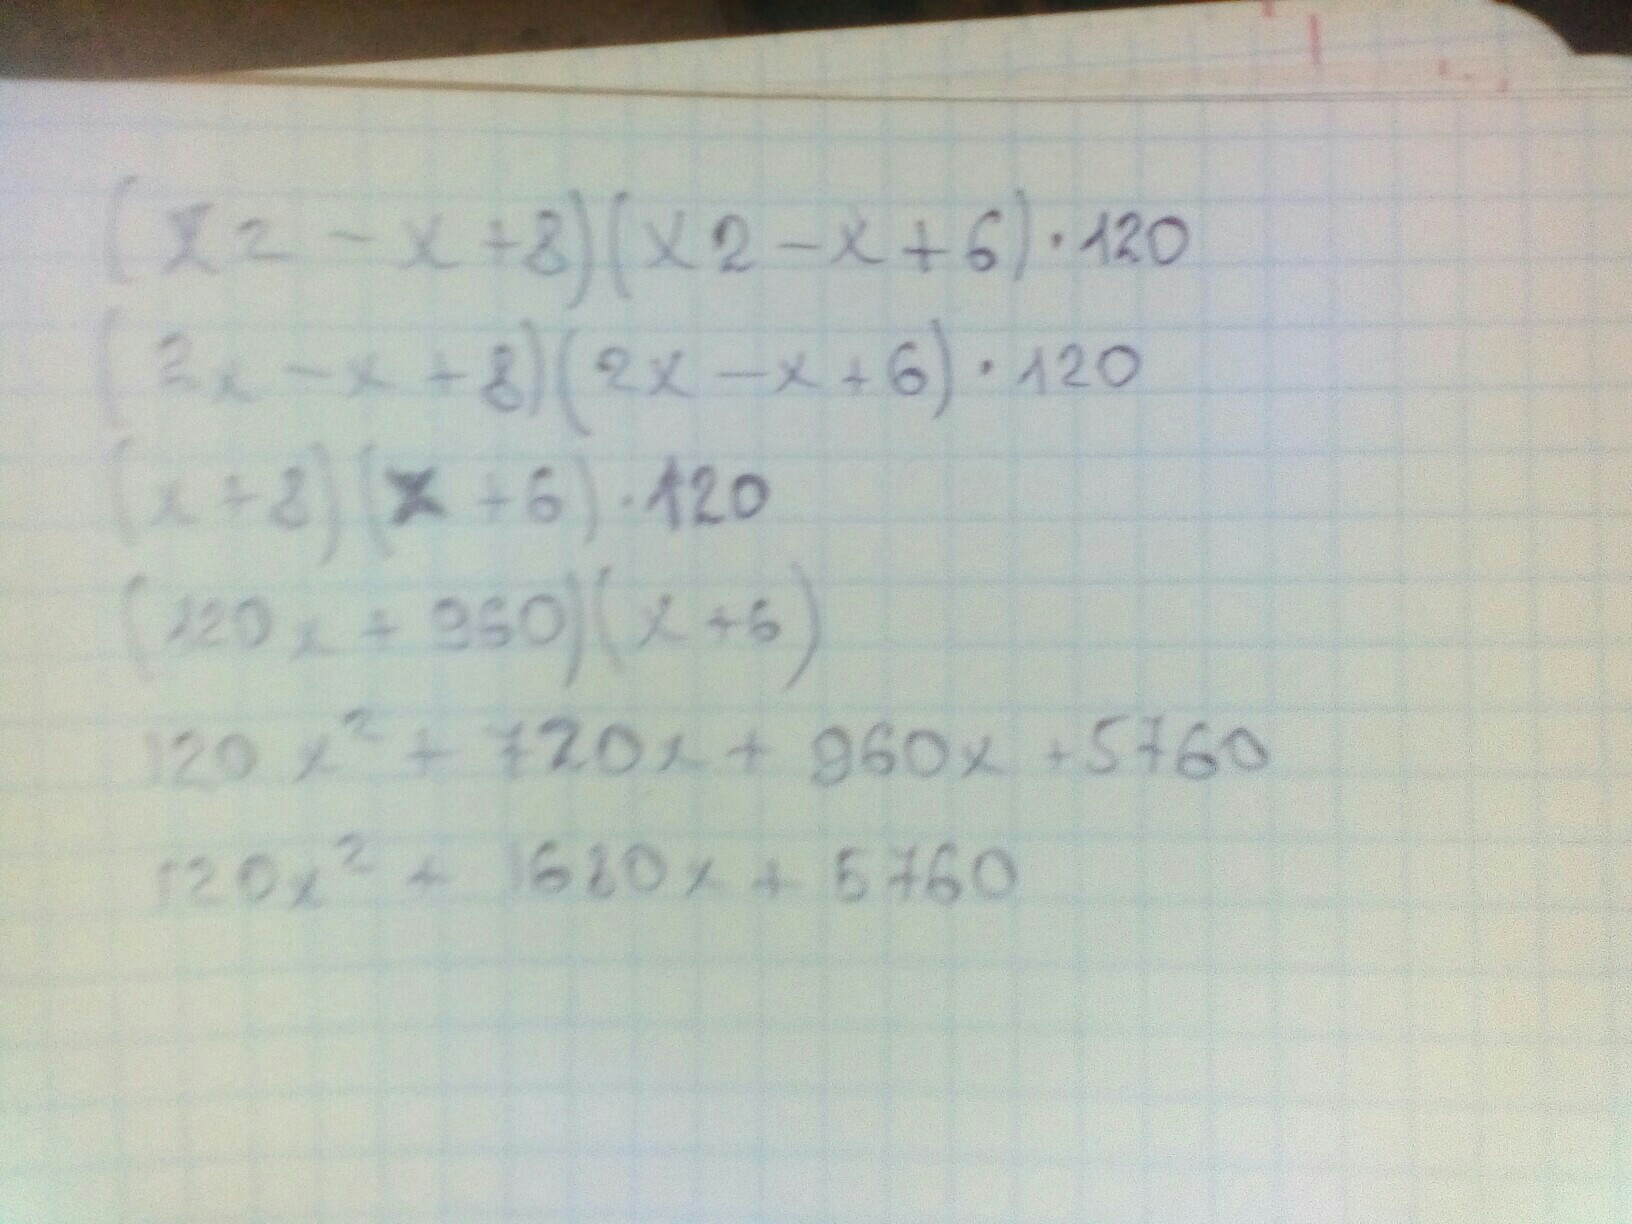 (x2 - x + 8)(x2 - x + 6) · 120
(2x - x + 8)(2x - x + 6) · 120
(x + 8)(x + 6) · 120
(120x + 960)(x + 6)
120x² + 720x + 960x + 5760
120x² + 1680x + 5760